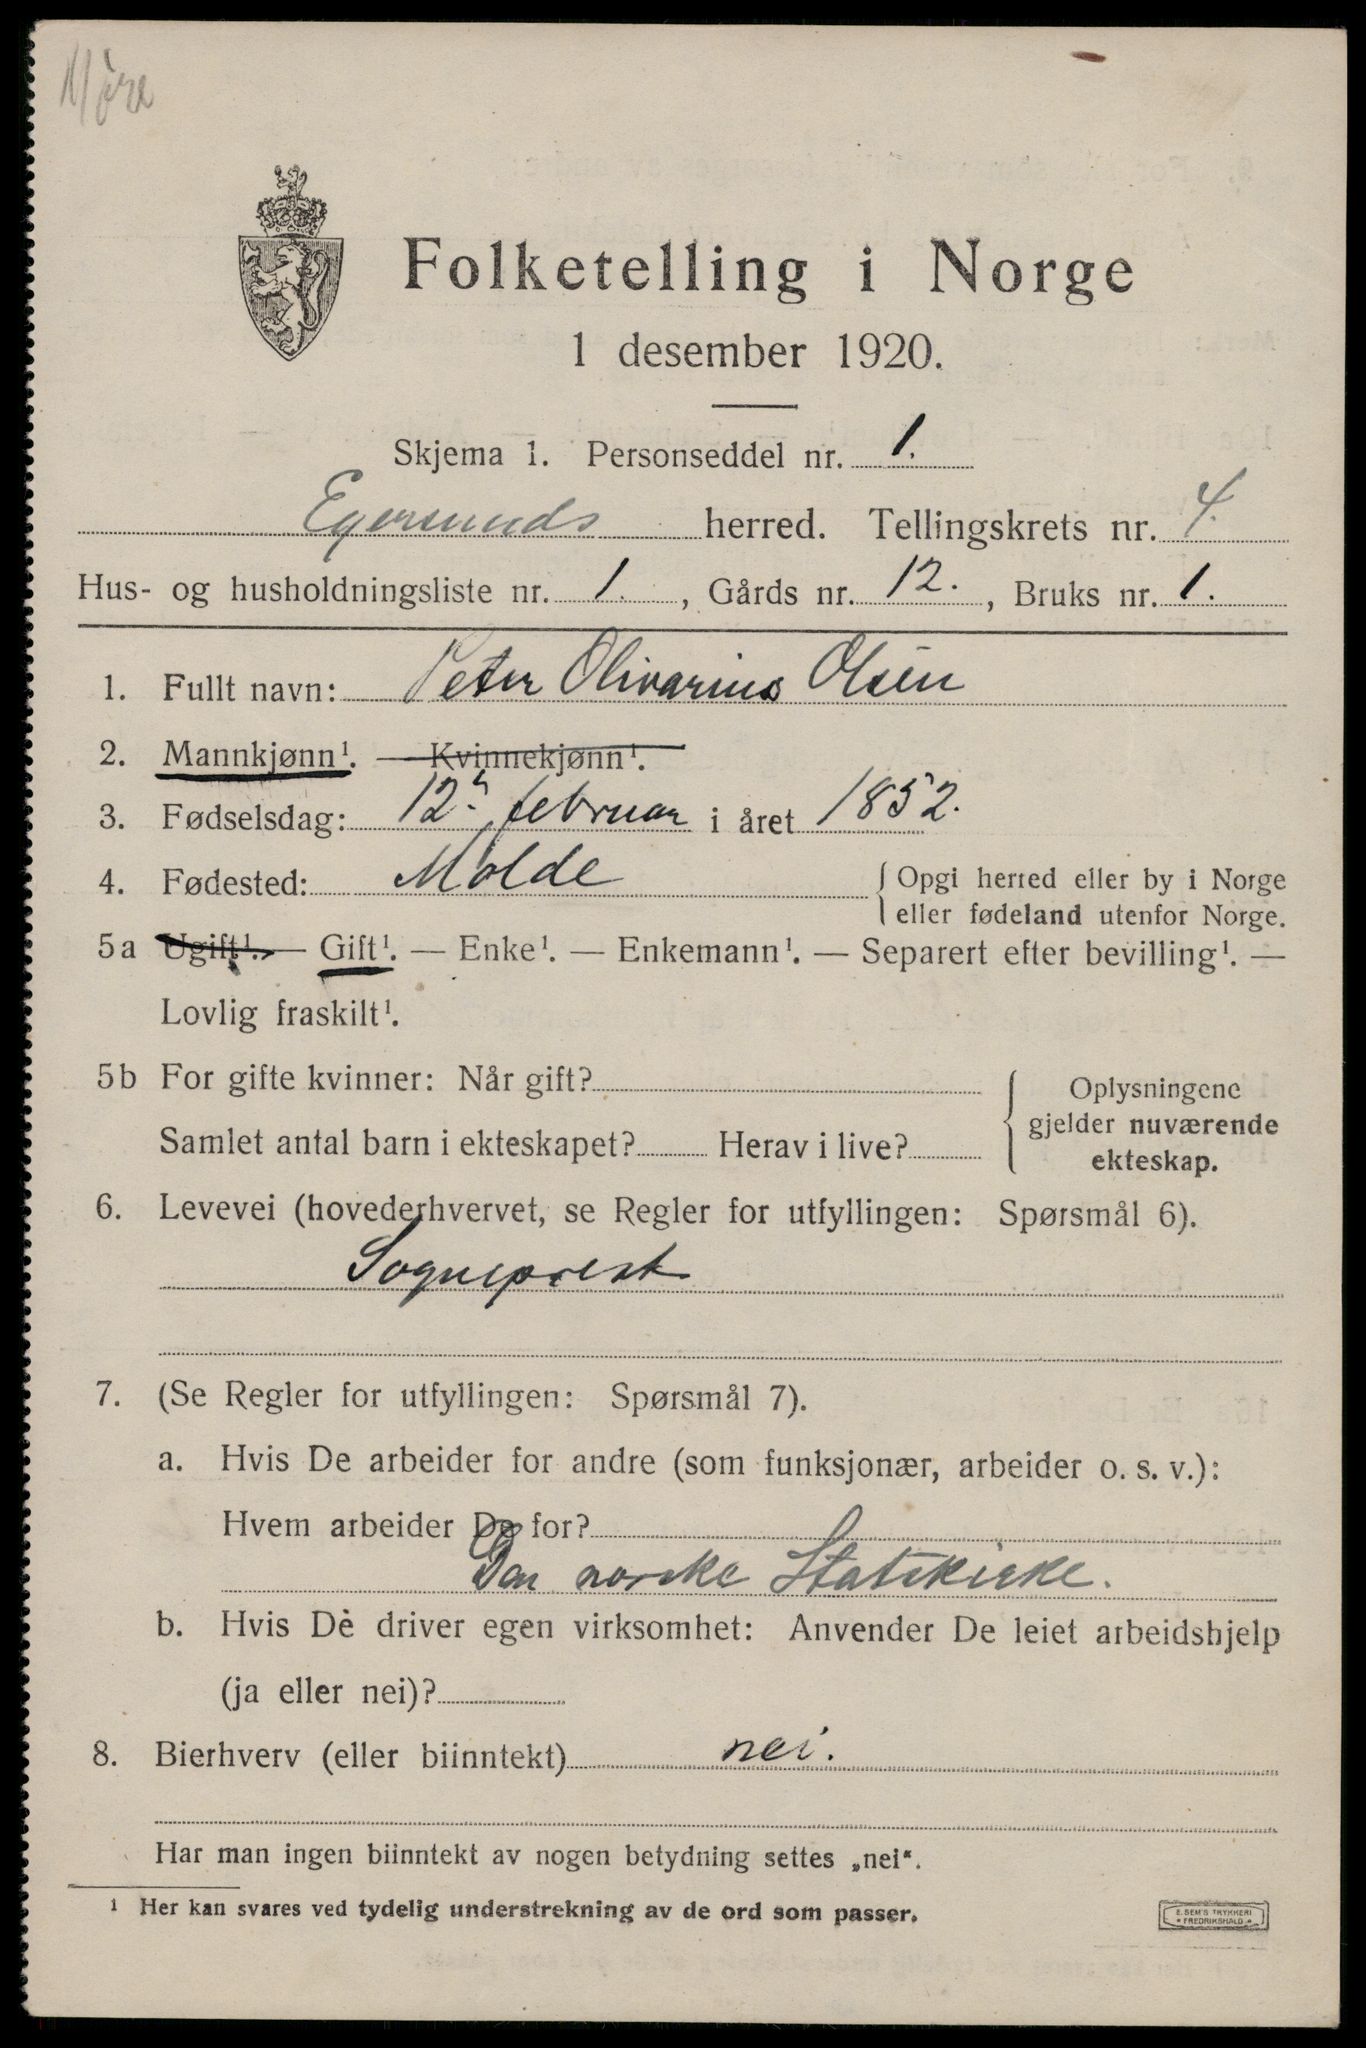 Møre
Folketelling i Norge
1 desember 1920.
Skjema 1. Personseddel nr. 1.
Egersunds herred. Tellingskrets nr. 4.
Hus- og husholdningsliste nr. 1. , Gårds nr. 12. , Bruks nr. 1.
1. Fullt navn: Peter Olivarius Olsen
2. Mannkjønn¹. — Kvinnekjønn¹.
3. Fødselsdag: 12. februar i året 1852.
4. Fødested: Molde { Opgi herred eller by i Norge
eller fødeland utenfor Norge.
5a Ugift¹. — Gift¹. — Enke¹. — Enkemann¹. — Separert efter bevilling¹. —
Lovlig fraskilt¹.
5b For gifte kvinner: Når gift?
Samlet antal barn i ekteskapet? Herav i live?
{ Oplysningene
gjelder nuværende
ekteskap.
6. Levevei (hovederhvervet, se Regler for utfyllingen: Spørsmål 6).
Sogneprest
7. (Se Regler for utfyllingen: Spørsmål 7).
a. Hvis De arbeider for andre (som funksjonær, arbeider o. s. v.):
Hvem arbeider De for?
Den norske Statskirke.
b. Hvis De driver egen virksomhet: Anvender De leiet arbeidshjelp
(ja eller nei)?
8. Bierhverv (eller biinntekt) nei.
Har man ingen biinntekt av nogen betydning settes „nei“.
¹ Her kan svares ved tydelig understrekning av de ord som passer.
E. SEM'S TRYKKERI
* FREDRIKSHALD *